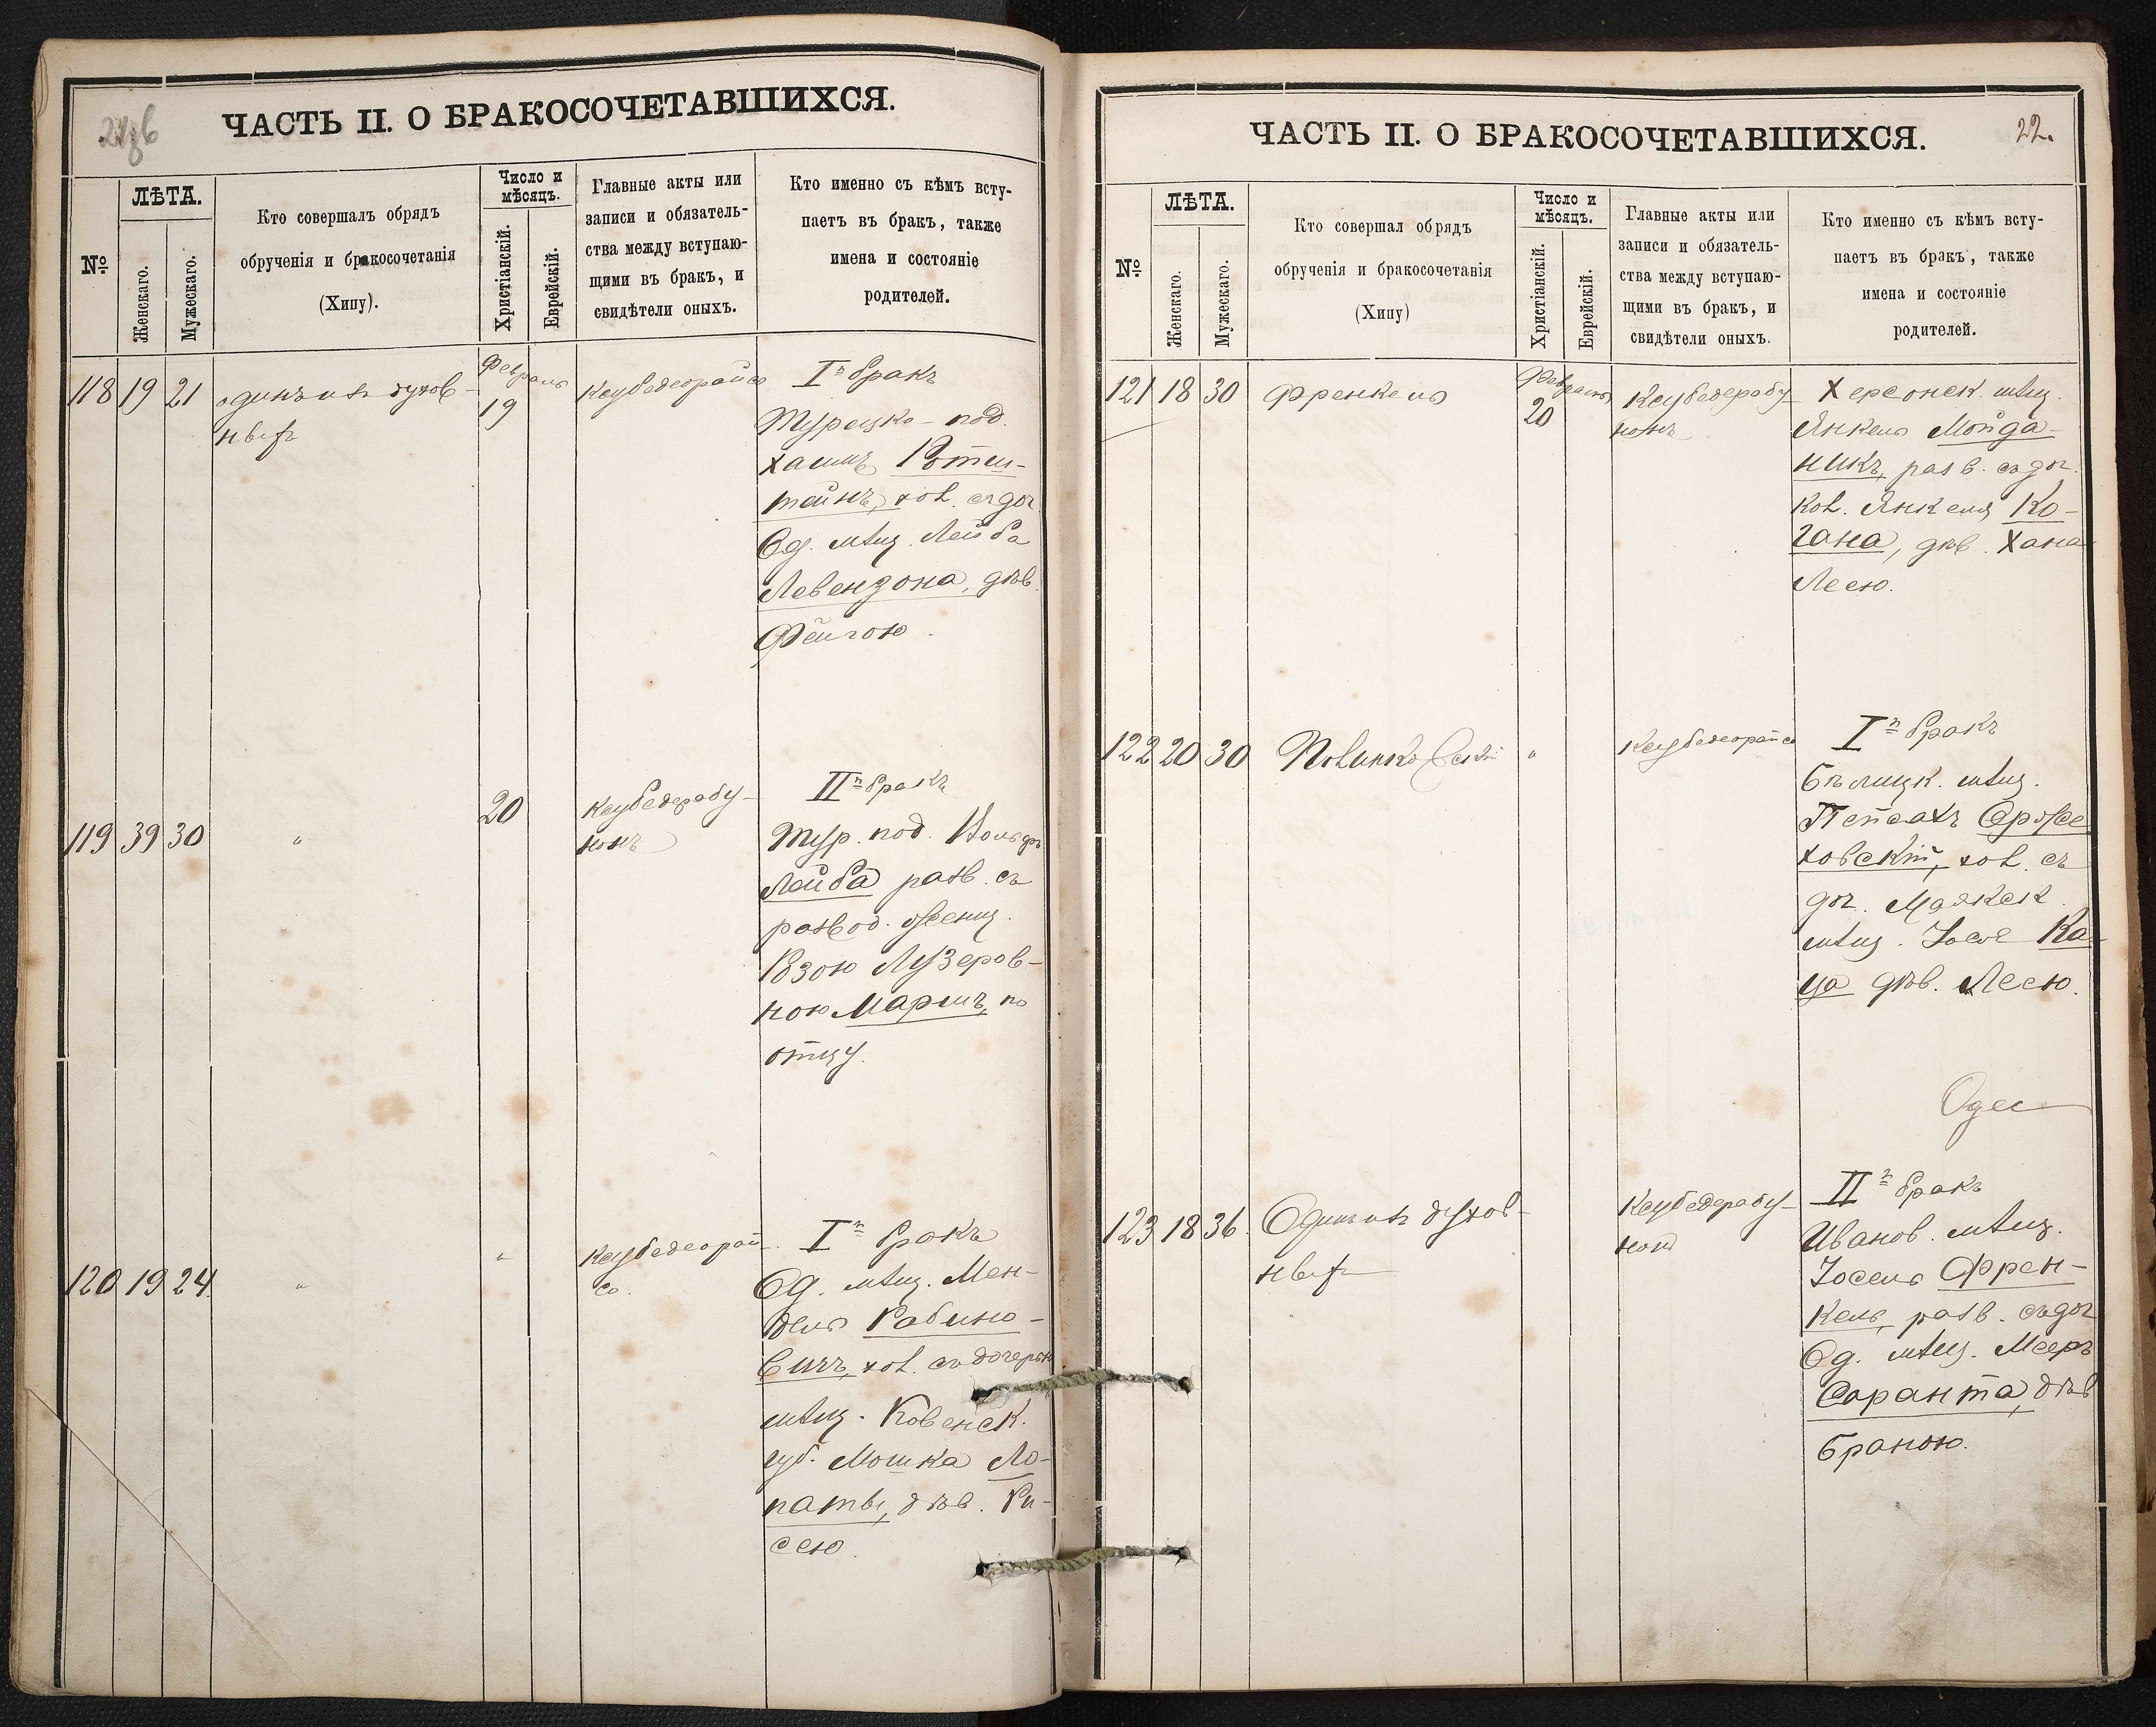 ЧАСТЬ II. О БРАКОСОЧЕТАВШИХСЯ.
№
ЛѢТА.
Женскаго.
Мужескаго.
Кто совершалъ обрядъ
обрученія и бракосочетанія
(Хипу).
Число и
мѣсяцъ.
Христіанскій.
Еврейскій.
Главные акты или
записи и обязатель-
ства между вступаю-
щими въ бракъ, и
свидѣтели оныхъ.
Кто именно съ кѣмъ всту-
паетъ въ бракъ, также
имена и состояніе
родителей.
118 19 21
одинъ изъ духов-
ныхъ
Февраль
19
Кеубедеорайсо
Iй бракъ
Турецко-под.
Хаимъ Ротш-
тейнъ, хол. съ доч
Од. мѣщ. Лейба
Левензона, дѣв.
Фейгою.
119 39 30
"
20
Кеубедерабу-
нонъ
IIй бракъ
Тур. под. Вольфъ
Лейба разв. съ
развод. женщ.
Розою Лузеров-
ною Маришъ, по
отцу.
120 19 24
"
"
Кеубедеорай-
со.
Iй бракъ
Од. мѣщ. Мен-
дель Рабино-
вичъ, хол. съ дочерью
мѣщ. Ковенск.
губ. Мошка Ло-
паты, дѣв. Ри-
сею.
ЧАСТЬ II. О БРАКОСОЧЕТАВШИХСЯ.
22.
№
ЛѢТА.
Женскаго.
Мужескаго.
Кто совершал обрядъ
обрученія и бракосочетанія
(Хипу)
Число и
мѣсяцъ.
Христіанскій.
Еврейскій.
Главные акты или
записи и обязатель-
ства между вступаю-
щими въ бракъ, и
свидѣтели оныхъ.
Кто именно съ кѣмъ всту-
паетъ въ бракъ, также
имена и состояніе
родителей.
121 18 30
Френкель
Февраль
20
Кеубедерабу-
нонъ
Херсонск. мѣщ.
Янкель Мойда-
никъ, разв. съ доч.
кол. Янкеля Ко-
гана, дѣв. Хана
Леею.
122 20 30
"
Кеубедеорайсо
Iй бракъ
Бѣлицк. мѣщ.
Пейсахъ
ховскій, хол. съ
доч. Маякск.
мѣщ. Ка-
ца дѣв. Леею.
Одес
123 18 36
Одинъ изъ духов-
ныхъ
Кеубедерабу-
нонъ
IIй бракъ
Иванов. мѣщ.
Іосель Френ-
кель, разв. съ доч
Од. мѣщ. Меера
Саранта, дѣв
Браною.